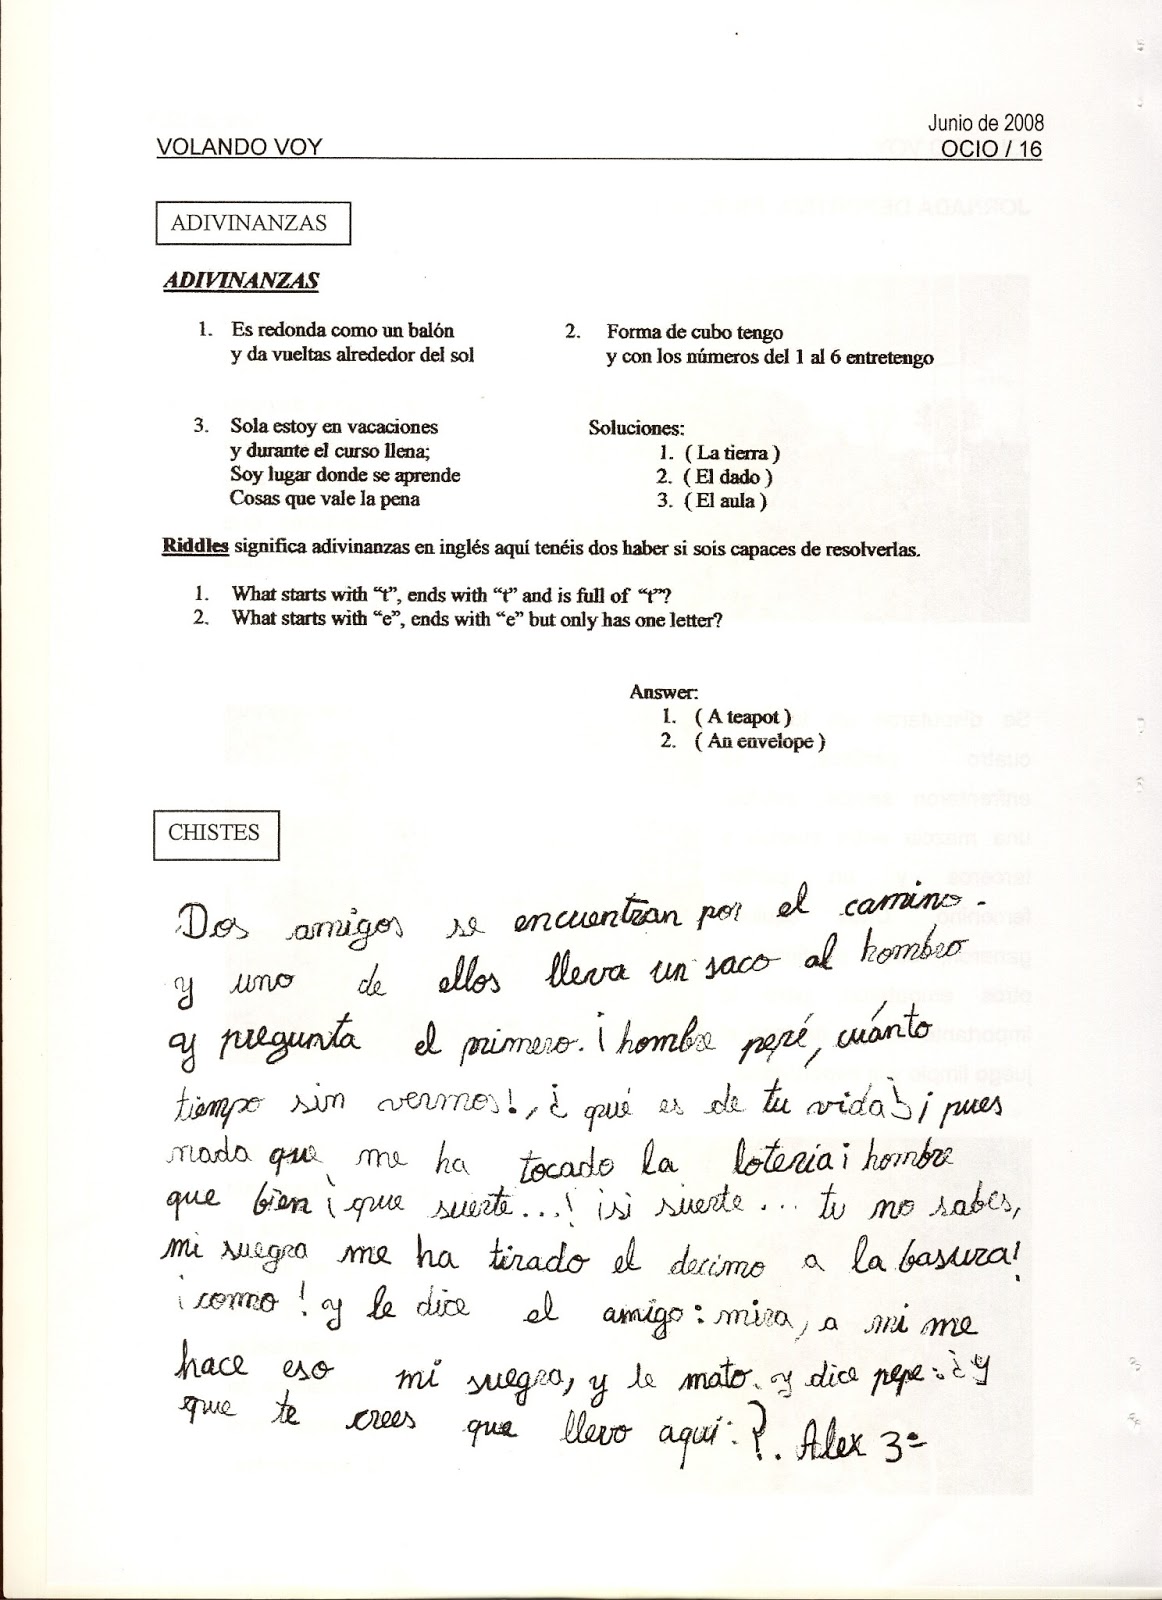 Junio de 2008
VOLANDO VOY OCIO / 16
ADIVINANZAS
ADIVINANZAS
1. Es redonda como un balón
y da vueltas alrededor del sol
2. Forma de cubo tengo
y con los números del 1 al 6 entretengo
3. Sola estoy en vacaciones
y durante el curso llena;
Soy lugar donde se aprende
Cosas que vale la pena
Soluciones:
1. ( La tierra )
2. ( El dado )
3. ( El aula )
Riddles significa adivinanzas en inglés aquí tenéis dos haber si sois capaces de resolverlas.
1. What starts with “t”, ends with “t” and is full of “t”?
2. What starts with “e”, ends with “e” but only has one letter?
Answer:
1. ( A teapot )
2. ( An envelope )
CHISTES
Dos amigos se encuentran por el camino.
y uno de ellos lleva un saco al hombro
y pregunta el primero. ¡hombre pepé, cuánto
tiempo sin vermos!, ¿ qué es de tu vida? ¡ pues
nada que me ha tocado la loteria ¡ hombre
que bien ¡ que suerte...! ¡si suerte... tu no sabes,
mi suegra me ha tirado el decimo a la basura!
¡como! y le dice el amigo: mira, a mi me
hace eso mi suegra, y le mato. y dice pepe: ¿Y
que te crees que llevo aquí:?. Alex 3º